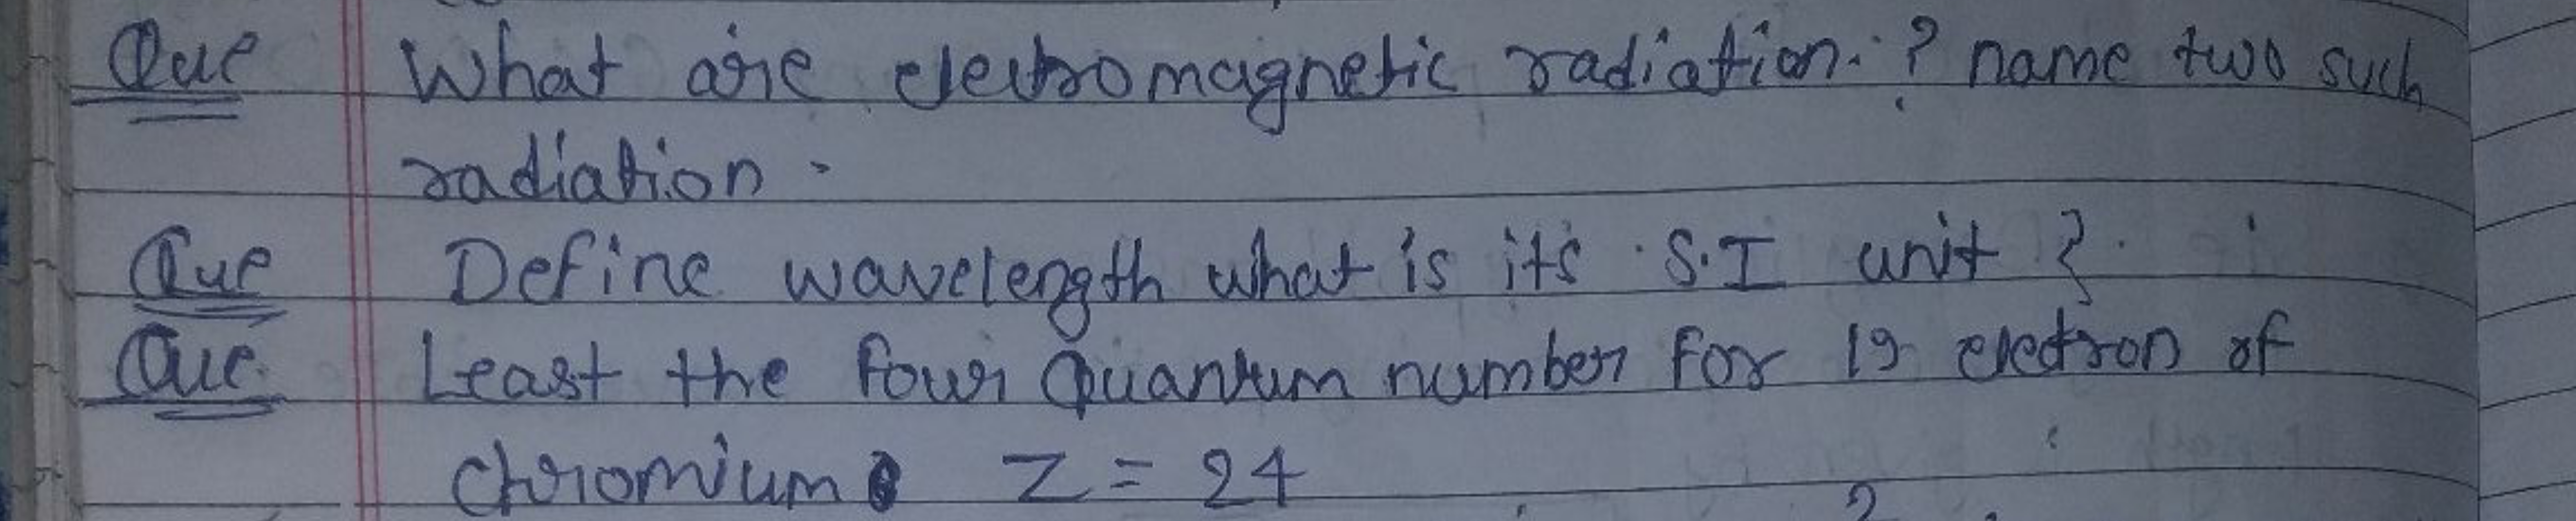 Que What are electromagnetic radiation. ? name two such
radiation.
Que Define wavelength what is its S.I unit ?
Que Least the four Quantum number for 19 electron of
chromium Z = 24